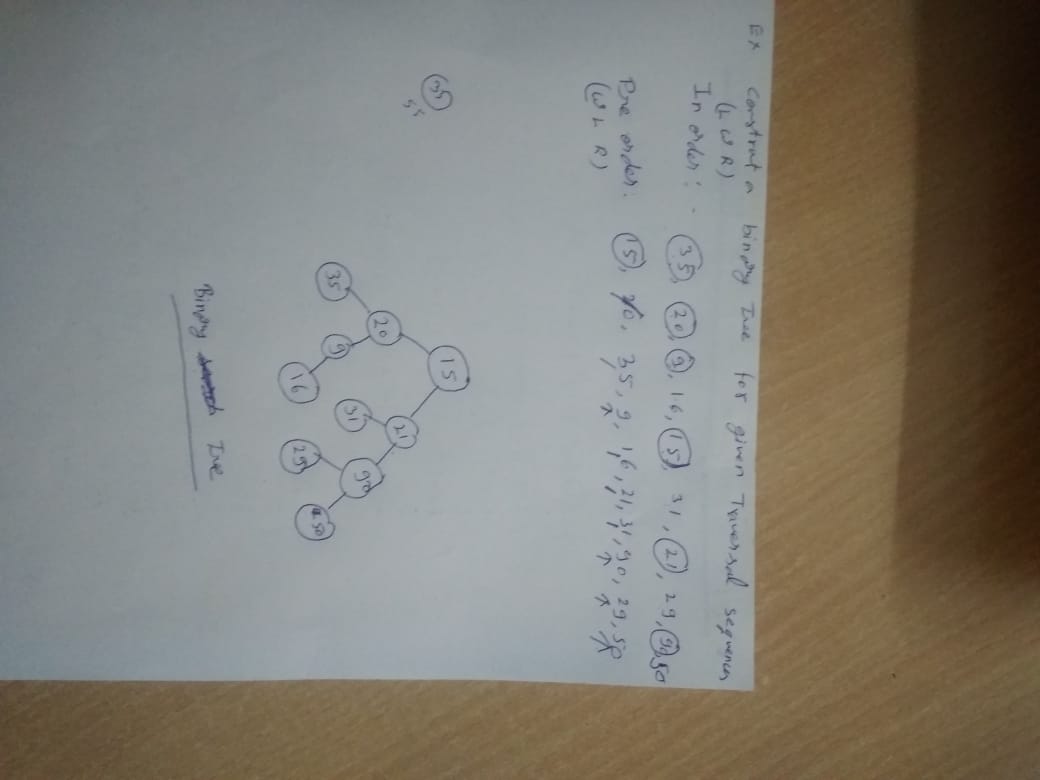 Ex Construct a binary Tree for given Traversal sequences
(L W R)
In order : . 35, 20, 9, 16, 15, 31, 21, 29, 90, 50
Pre order : 15, 20, 35, 9, 16, 21, 31, 90, 29, 50
(W L R)
15
20 21
35 9 31 90
16 29 50
Binary Tree